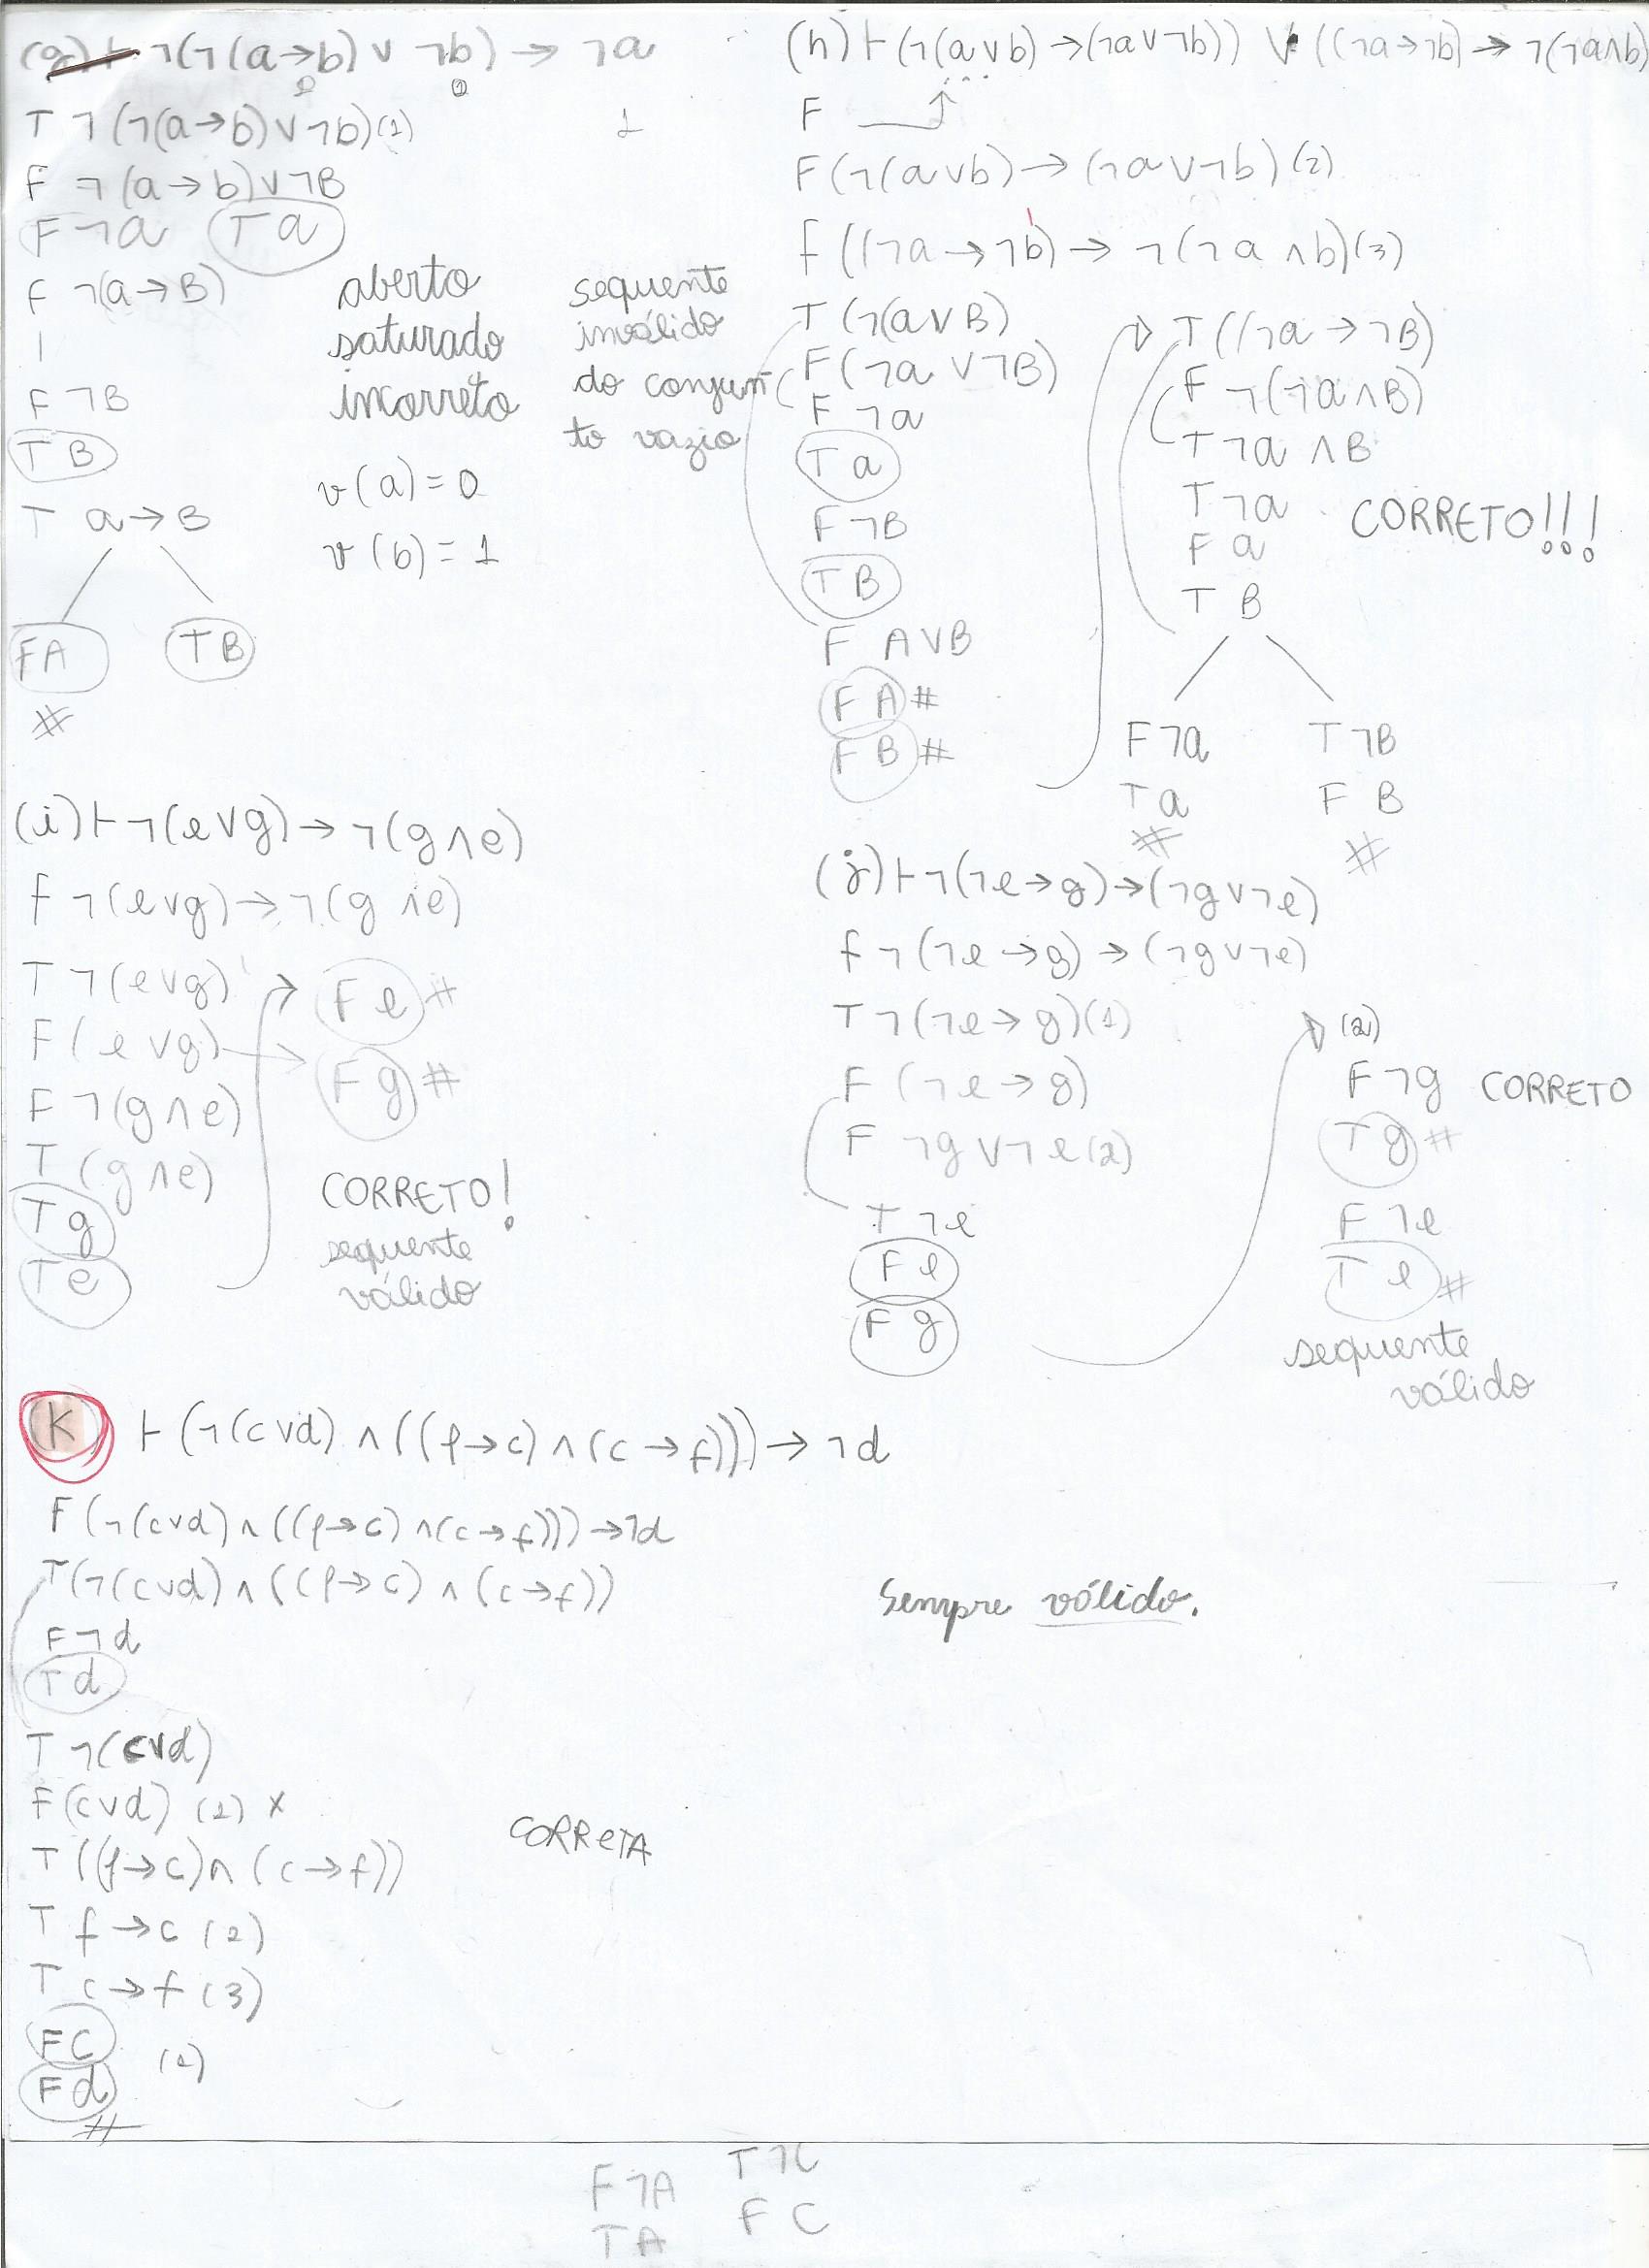 (g) ⊢ ¬(¬(a→b) ∨ ¬b) → ¬a
T ¬(¬(a→b)∨¬b)(1)
1
F ¬(a→b)∨¬B
F ¬a T a
F ¬(a→B)
F ¬B
T B
T a→B
FA TB
#
aberto
saturado
incorreto
v(a)=0
v(b)=1
sequente
inválido
do conjun
to vazio
(h) ⊢ (¬(a∨b)→(¬a∨¬b)) ∨ ((¬a→¬b)→¬(¬a∧b)
F
F(¬(a∨b)→(¬a∨¬b)(2)
f((¬a→¬b)→ ¬(¬a∧b)(3)
T(¬(a∨B)
F(¬a∨¬B)
F ¬a
T a
F ¬B
T B
F A∨B
F A #
F B #
T((¬a→¬B)
F ¬(¬a∧B)
T ¬a∧B
T ¬a
F a
T B
CORRETO!!!
F ¬a T ¬B
T a F B
# #
(i) ⊢ ¬(e∨g)→¬(g∧e)
f ¬(e∨g)→¬(g∧e)
T ¬(e∨g)
F(e∨g)
F ¬(g∧e)
T (g∧e)
T g
T e
F e #
F g #
CORRETO!
sequente
válido
(j) ⊢ ¬(¬e→g)→(¬g∨¬e)
f ¬(¬e→g)→(¬g∨¬e)
T ¬(¬e→g)(1)
F (¬e→g)
F ¬g∨¬e(2)
T ¬e
F e
F g
(2)
F ¬g CORRETO
T g #
F ¬e
T e #
sequente
válido
K ⊢ (¬(c∨d) ∧((f→c)∧(c→f)))→¬d
F(¬(c∨d)∧((f→c)∧(c→f)))→¬d
T(¬(c∨d)∧((f→c)∧(c→f))
F ¬d
T d
T ¬(c∨d)
F(c∨d) (1) x
T((f→c)∧(c→f))
T f→c (2)
T c→f (3)
FC
Fd (1)
#
Sempre válido.
CORRETA
F ¬A T ¬C
T A F C